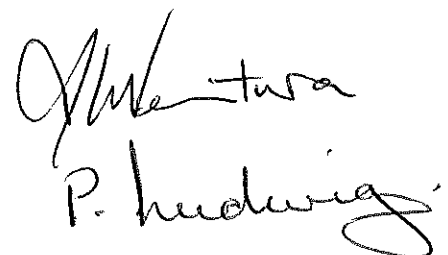 Ventura
P. Ludwig